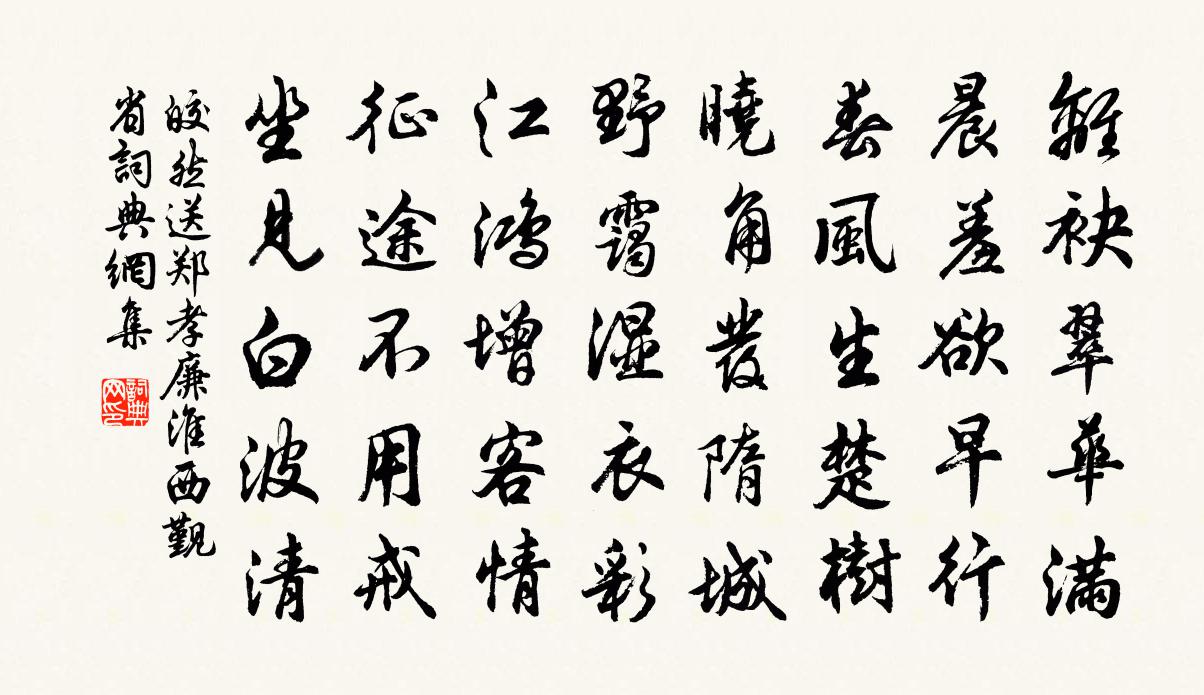 離袂翠華滿
晨羞欲早行
春風生楚樹
曉角發隋城
野靄濕衣彩
江鴻增客情
征途不用戒
坐見白波清
皎然送郑孝廉淮西觐
省詞典網集
詞典网印